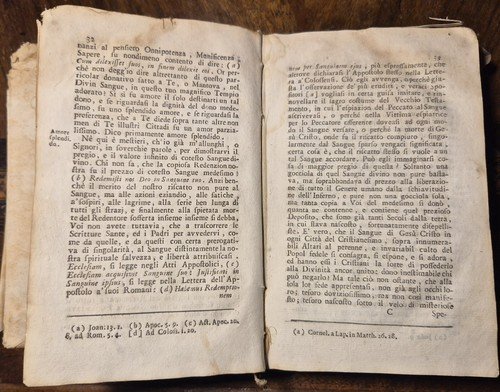 32
nanzi al pensiero Onnipotenza, Munificenza,
Sapere, fu nondimeno contento di dire: (a)
Cum dilexisset suos, in finem dilexit eos. Or per-
chè non deggio dire altrettanto di questo par-
ticolar donativo fatto a Te, o Mantova, nel
Divin Sangue, in questo tuo magnifico Tempio
adorato? Sì sì fu amor il solo destinarti un tal
dono, e se riguardasi la dignità del dono mede-
simo, fu uno splendido amore, e se riguardasi la
preferenza, che a Te diede sopra tante altre non
men di Te illustri Cittadi fu un amor parzia-
lissimo. Dico primamente amore splendido.
Amore
splendi-
do.
Nè quì è mestieri, ch'io già m'allunghi,
Signori, in soverchie parole, per dimostrarvi il
pregio, e il valore infinito di cotesto Sangue
divino. Chi non sa, che la copiosa Redenzione no-
stra fu il prezzo di cotesto Sangue medesimo?
(b) Redemisti nos Deo in Sanguine tuo. Anzi ben-
chè il merito del nostro riscatto non pure al
Sangue, ma alle azioni eziandio, alle fatiche,
a'sospiri, alle lagrime, alla serie ben lunga di
tutti gli strazj, e finalmente alla spietata mor-
te del Redentore sofferta insieme insieme si debba,
Voi non avete tuttavia, che a trascorrere le
Scritture Sante, ed i Padri per avvedervi, co-
me da quelle, e da questi con certa prerogati-
va di singolarità, al Sangue distintamente la no-
stra spirituale salvezza, e libertà attribuiscasi.
Ecclesiam, si legge negli Atti Appostolici, (c)
Ecclesiam acquisivit Sanguine suo: Justificati in
Sanguine ipsius, si legge nella Lettera dell'Ap-
postolo a'suoi Romani: (d) Habemus Redemptio-
nem
(a) Joan. 13. 1. (b) Apoc. 5. 9. (c) Act. Apoc. 20.
8, ad Rom. 5. 4. [d] Ad Coloss. 1. 20.
nem per Sanguinem ejus, più espressamente, che
altrove dichiarasi l'Appostolo stesso nella Lettera
a' Colossensi. Ciò egli avvenga, perchè giu-
sta l'osservazione de' più eruditi, e veraci spo-
sitori (a) vogliasi in certa guisa imitare, e rin-
novellare il sagro costume del Vecchio Testa-
mento, in cui l'espiazion del Peccato al Sangue
attribuivasi, o perchè nella Vittima espiatrice
per lo Peccatore offerirne dovevasi ad ogni mo-
do il Sangue versato, o perchè la morte di Ge-
sù Cristo, onde fu il riscatto compiuto, singo-
larmente dal Sangue sparso vengaci significata,
certa cosa è, che il riscatto stesso si vuole a un
tal Sangue accordare. Può egli immaginarsi co-
sa di maggior pregio di questa? Soltanto una
gocciola di quel Sangue divino non pure basta-
va, ma soprabbondava di prezzo alla liberazio-
ne di tutto il Genere umano dalla schiavitudi-
ne dell'Inferno, e pure non una gocciola sola,
ma tanta copia a Voi del medesimo si donò
quanta ne contenne, e contiene quel prezioso
Deposito, che sono già tanti Secoli dalla terra,
in cui stava nascosto, fortunatamente dissepelli-
ste. E' vero, che il Sangue di Gesù Cristo in
ogni Città del Cristianesimo, sopra innumera-
bili Altari al perenne, e invariabil culto del
Popol fedele si consagra, si espone, e si adora,
nè hanno essi i Cristiani la sorte di possederlo
alla Divinità ancor unito: dono inestimabile che
può magiarlo! Ma tale ciò non ostante, che alla
sola lor fede appresentasi, non già agli occhi lo-
ro; tesoro dovizioſissimo, ma non così manife-
sto; tesoro nascosto sotto il velo di misteriose
C Spe-
(a) Cornel. a Lap. in Matth. 26. 28.